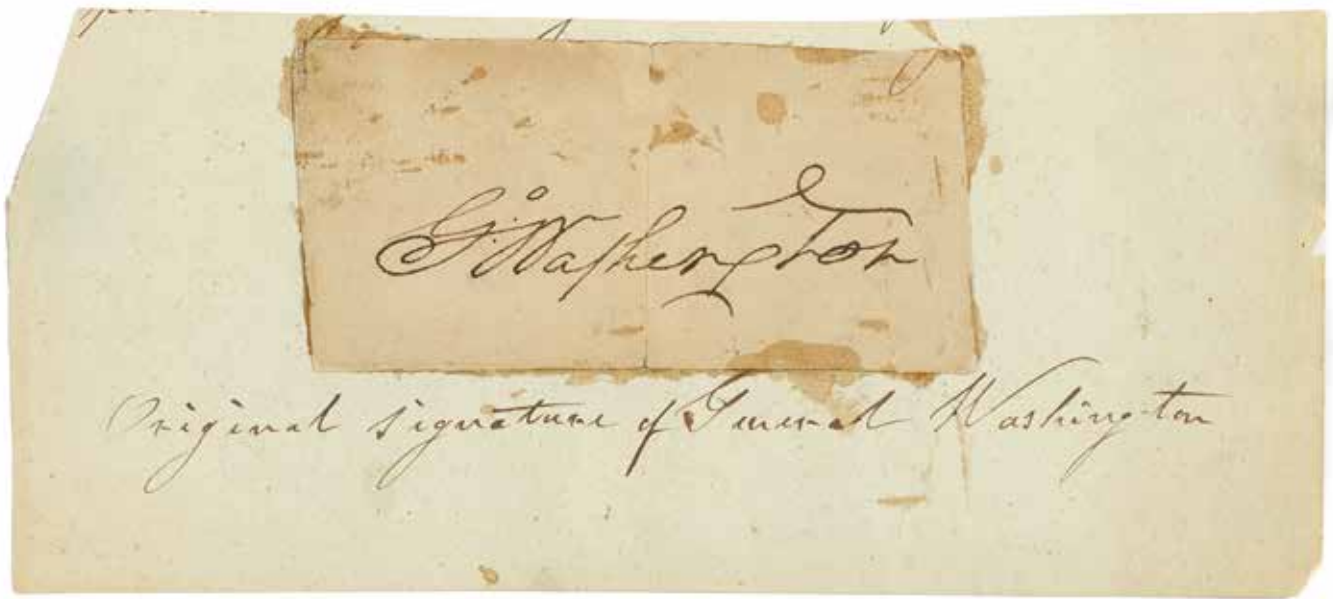 Go: Washington
Original signature of General Washington